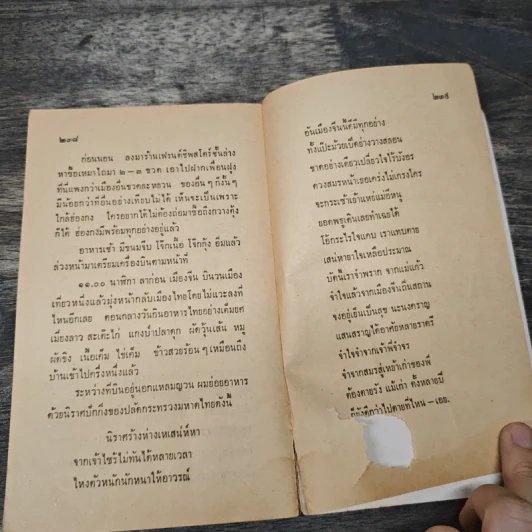 ๒๓๘
ก่อนนอน ลงมาร้านเฟรนด์ชิพสโตร์ชั้นล่าง
หาซื้อเหมาไถมา ๒ – ๓ ขวด เอาไปฝากเพื่อนฝูง
ที่นี่แพงกว่าเมืองอื่นขวดละหยวน ของอื่น ๆ ก็งั้น ๆ
มีน้อยกว่าที่อื่นอย่างเทียบไม่ได้ เห็นจะเป็นเพราะ
ใกล้ฮ่องกง ใครอยากได้ไม่ต้องถ่อมาซื้อถึงกวางตุ้ง
ก็ได้ ฮ่องกงมีพร้อมทุกอย่างอยู่แล้ว
อาหารเช้า มีขนมจีบ โจ๊กเนื้อ โจ๊กกุ้ง อิ่มแล้ว
ล่วงหน้ามาเตรียมเครื่องบินตามหน้าที่
๑๑.๐๐ นาฬิกา ลาก่อน เมืองจีน บินวนเมือง
เที่ยวหนึ่งแล้วมุ่งหน้ากลับเมืองไทยโดยไม่แวะลงที่
ไหนอีกเลย ตอนกลางวันกินอาหารไทยอย่างเต็มยศ
เมี่ยงลาว สะเต๊ะไก่ แกงป่าปลาดุก ผัดวุ้นเส้น หมู
ผัดขิง เนื้อเค็ม ไข่เค็ม ข้าวสวยร้อน ๆ เหมือนถึง
บ้านเข้าไปครึ่งหนึ่งแล้ว
ระหว่างที่บินอยู่นอกแหลมญวน ผมย่อยอาหาร
ด้วยนิราศปักกิ่งของปลัดกระทรวงมหาดไทยดังนี้
นิราศร้างห่างเหเสน่ห์หา
จากเจ้าไซร้ไม่ทันได้หลายเวลา
ไหงตัวหนักนักหนาให้อาวรณ์
๒๓๙
อันเมืองจีนนี้ดีมีทุกอย่าง
ทั้งแป๊ะม้วยเบ๊ดอ่างวางสลอน
ขาดอย่างเดียวเปลี่ยวใจไร้บังอร
ดวงสมรหน้าเธอเคร่งไม่เกรงใคร
จะกระเซ้าเย้าแหย่แม่ยี่หนู
ยอดพธูเดินเลยทำเฉยได้
โอ้กระไรใจแคบ เราแทบตาย
เสน่หายาใจเหลือประมาณ
บัดนี้เราจำพราก จากแม่แก้ว
จำใจแล้วจากเมืองจีนถิ่นสถาน
จงอยู่เย็นเป็นสุข นะนงคราญ
แสนสราญได้อาศัยหลายราตรี
จำใจจำจากเจ้าที่จำจร
จำจากสมรสู่เหย้าเก่าของพี่
ต้องตายรัง แม้เก่า ตั้งหลายปี
ก็ยังดีกว่าไปตายที่ไหน –เอย.